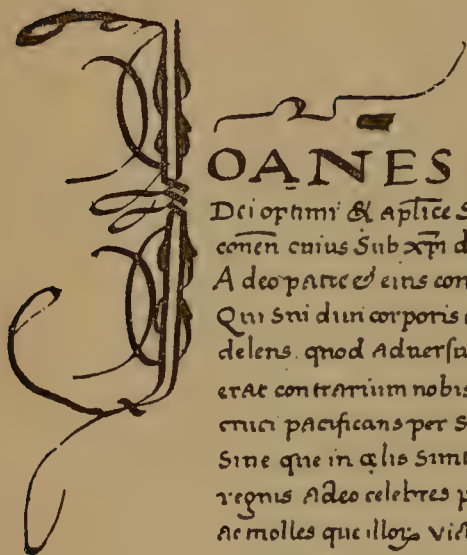 JOANES
Dei optimi & aplice S
conen cuius Sub xpi d
A deo patre & eius con
Qui Sui diui corporis
delens. quod aduersu
erat contrarium nobis
cruci pacificans per S
Siue que in cęlis Siue
regnis Adeo celebres p
ac molles que illoꝝ vic